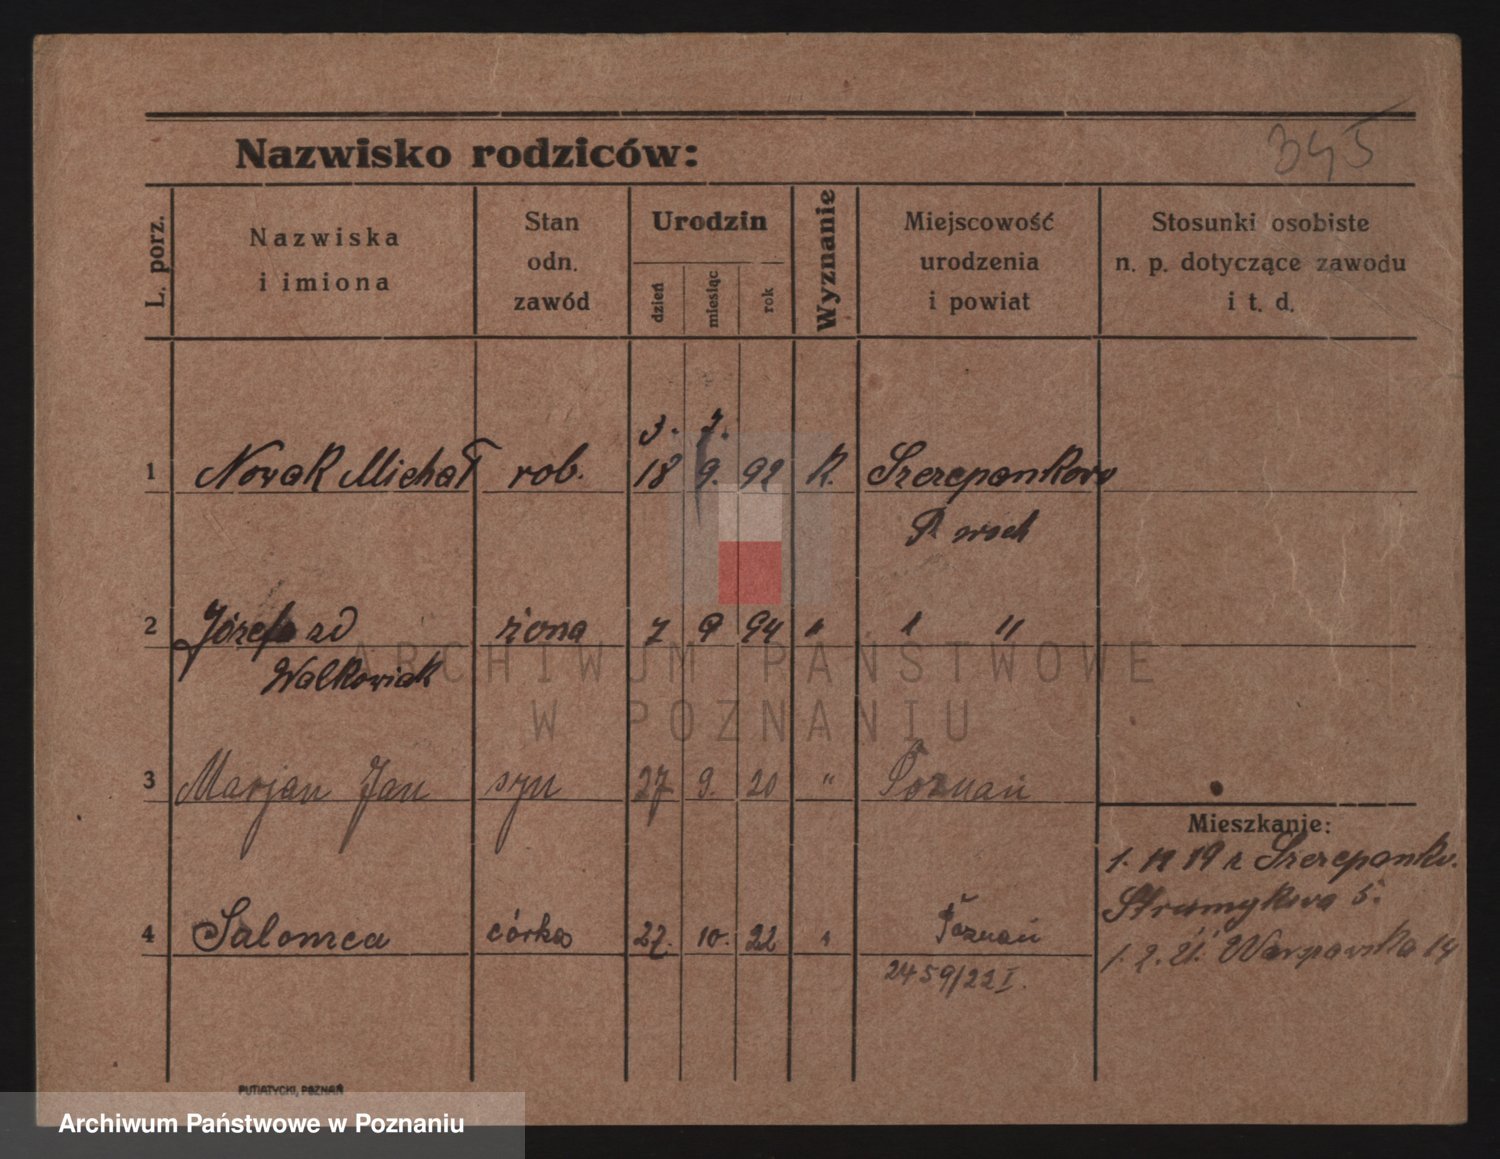 345
Nazwisko rodziców:
L. porz.
Nazwiska
i imiona
Stan
odn.
zawód
Urodzin
dzień
miesiąc
rok
Wyznanie
Miejscowość
urodzenia
i powiat
Stosunki osobiste
n. p. dotyczące zawodu
i t. d.
3. 7.
1 Nowak Michał rob. 18 9. 92 R. Szczepankowo
P. wsch
2 Józefa zd żona 7 9 94 " " "
Walkowiak
3 Marjan Jan syn 27 9. 20 " Poznań
Mieszkanie:
1. 11 19 z Szczepankow.
Strumykowa 5.
4 Salomea córka 27. 10. 22 " Poznań
1. 2. 21. Warszawska 14
2459/22 I.
PUTIATYCKI, POZNAŃ
ARCHIWUM PAŃSTWOWE
W POZNANIU
Archiwum Państwowe w Poznaniu